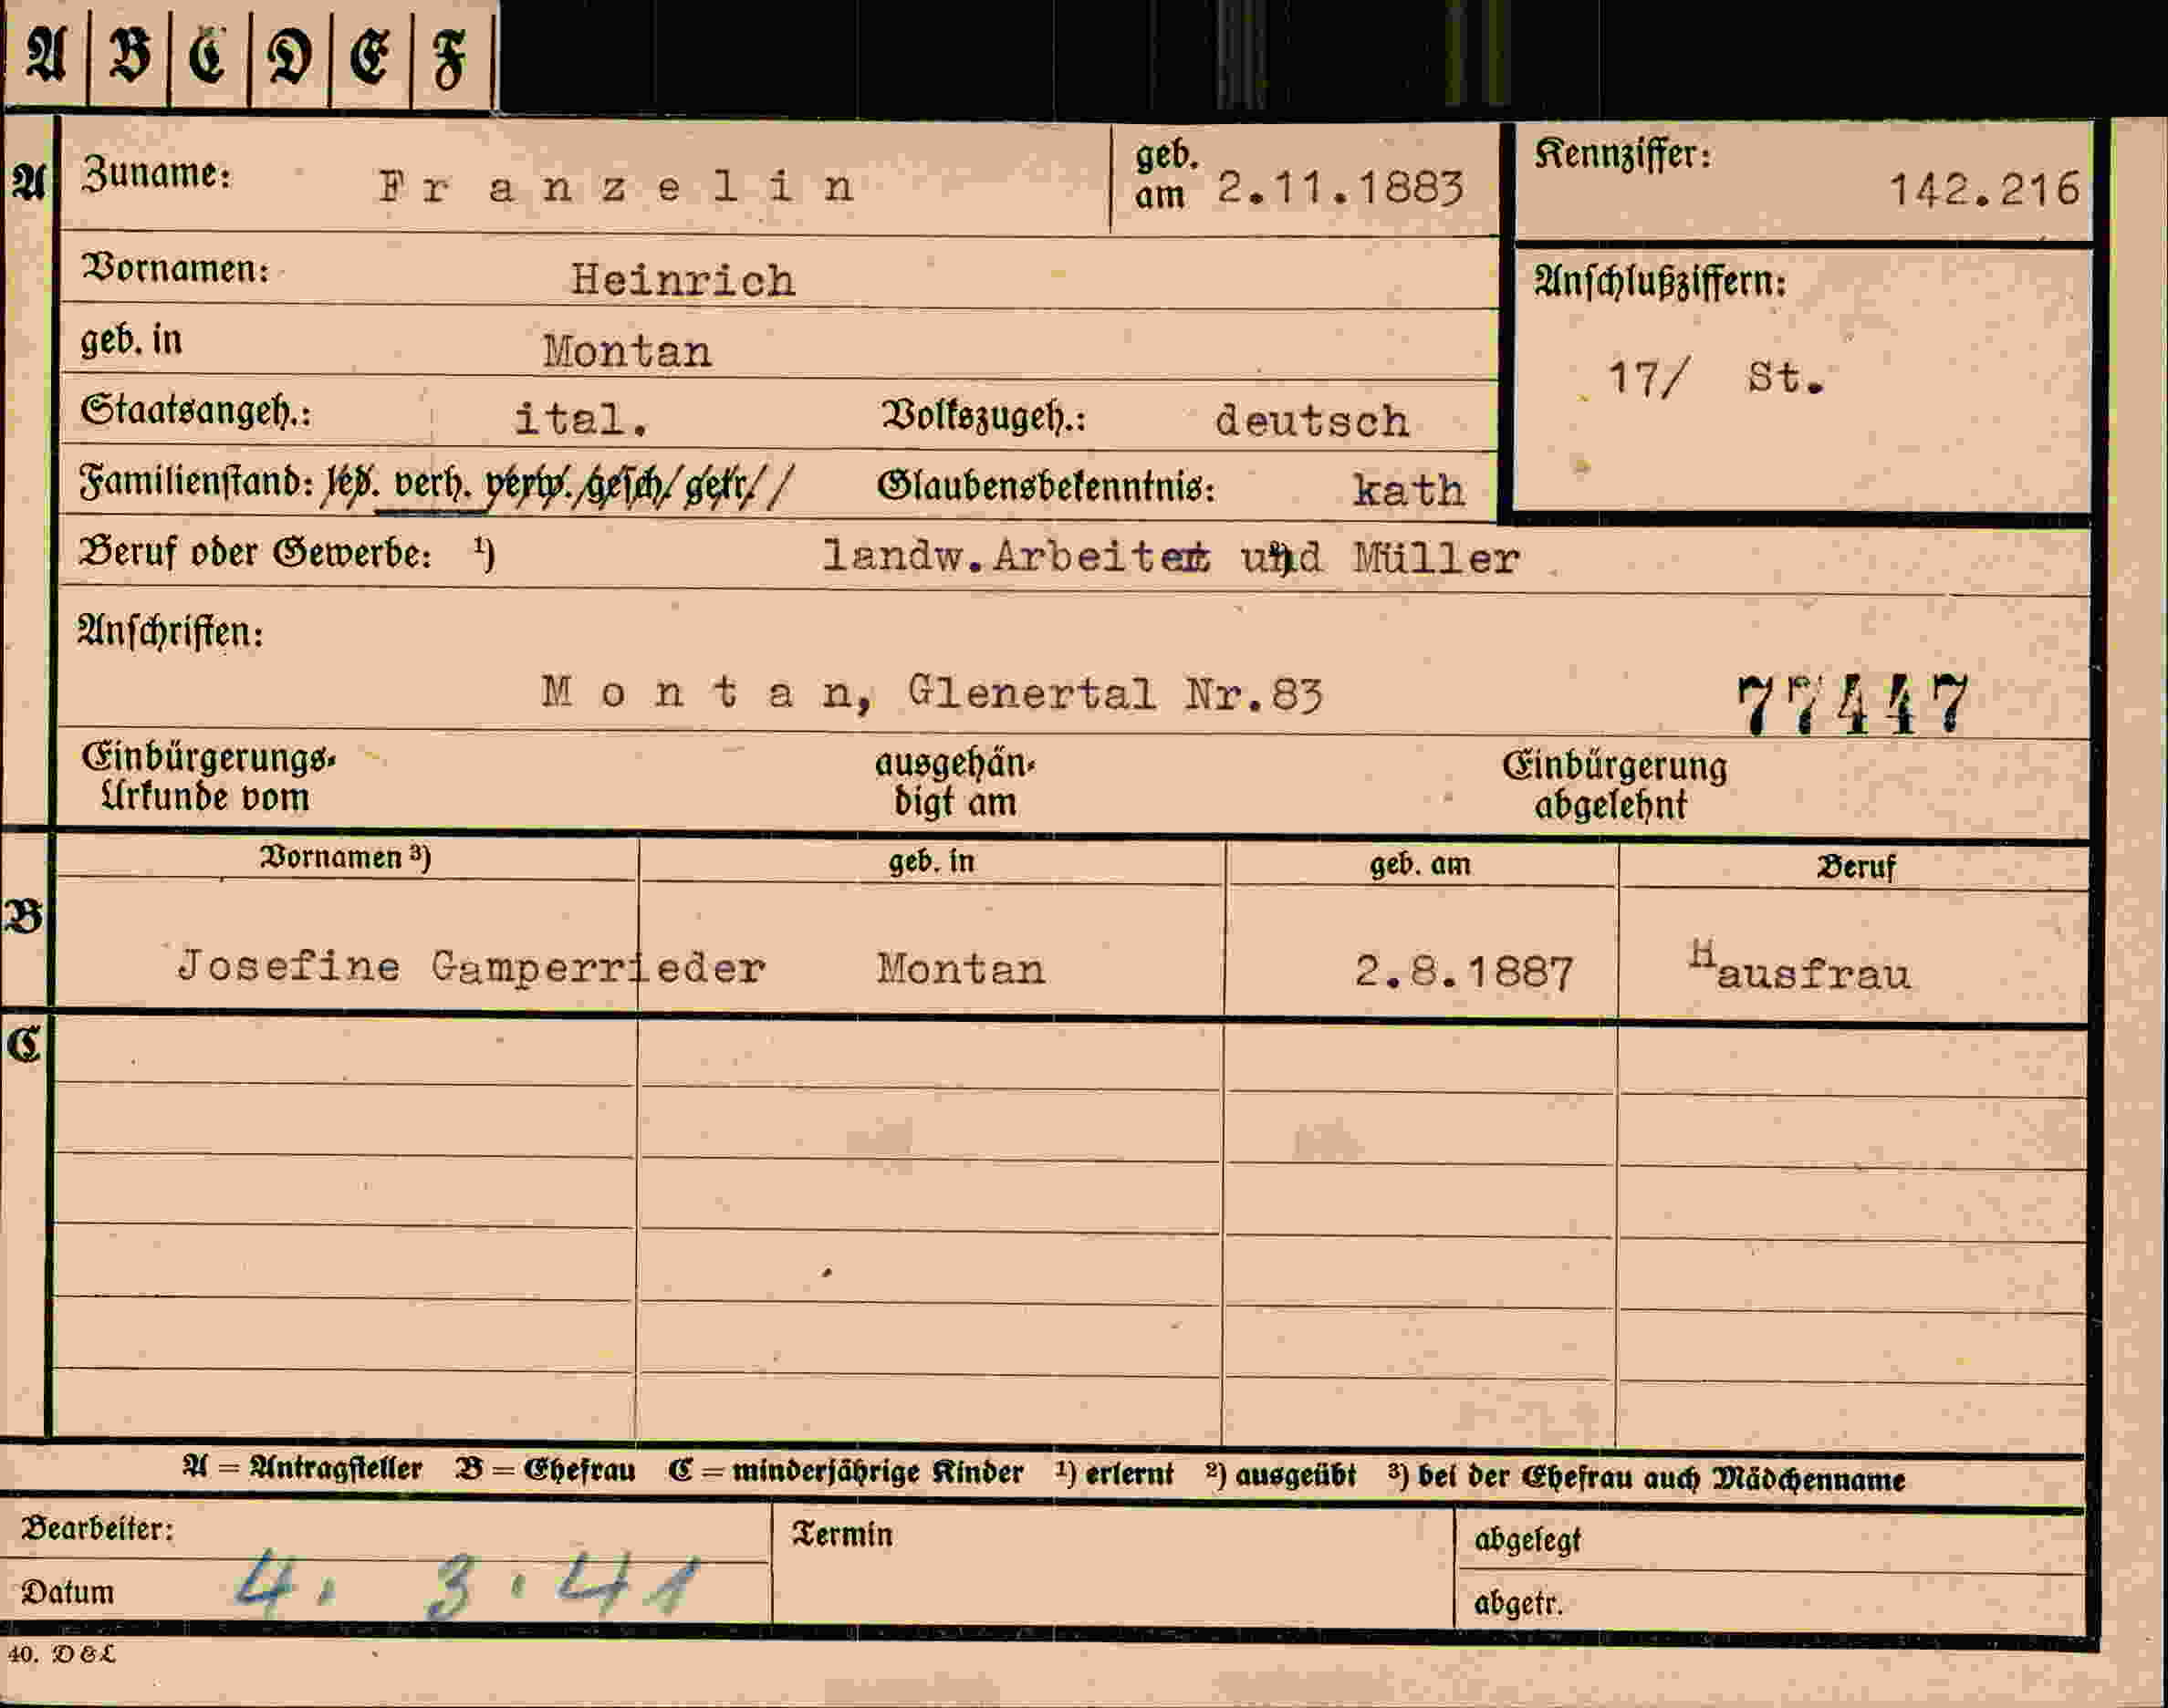 A B C D E F
A Zuname: Franzelin geb. am 2.11.1883 Kennziffer: 142.216
Vornamen: Heinrich Anschlußziffern:
geb. in Montan 17/ St.
Staatsangeh.: ital. Volkszugeh.: deutsch
Familienstand: led. verh. verw. gesch. getr. Glaubensbekenntnis: kath
Beruf oder Gewerbe: ¹) landw.Arbeiter und Müller
Anschriften:
Montan, Glenertal Nr.83 77447
Einbürgerungs- ausgehän- Einbürgerung
Urkunde vom digt am abgelehnt
Vornamen ³) geb. in geb. am Beruf
B
Josefine Gamperrieder Montan 2.8.1887 Hausfrau
C
A = Antragsteller B = Ehefrau C = minderjährige Kinder ¹) erlernt ²) ausgeübt ³) bei der Ehefrau auch Mädchenname
Bearbeiter: Termin abgelegt
Datum 4. 3. 41 abgetr.
40. D&L